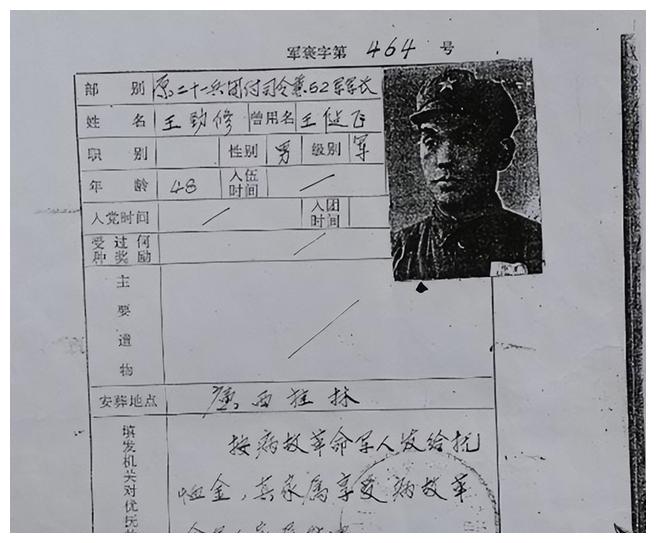 军褒字第 464 号
部别 原二十一兵团付司令兼52军军长
姓名 王劲修 曾用名 王健飞
职别 性别 男 级别 军
年龄 48 入伍时间 /
入党时间 / 入团时间
受过何种奖励 /
主要遗物 /
安葬地点 广西桂林
填发机关对优抚
按病故革命军人发给抚
恤金，其家属享受病故革